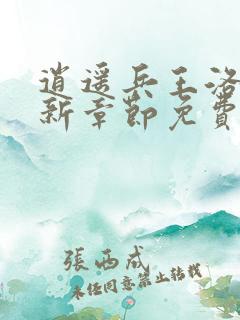 逍遥兵王洛
新章節免費
張西成
未任同意禁止转載